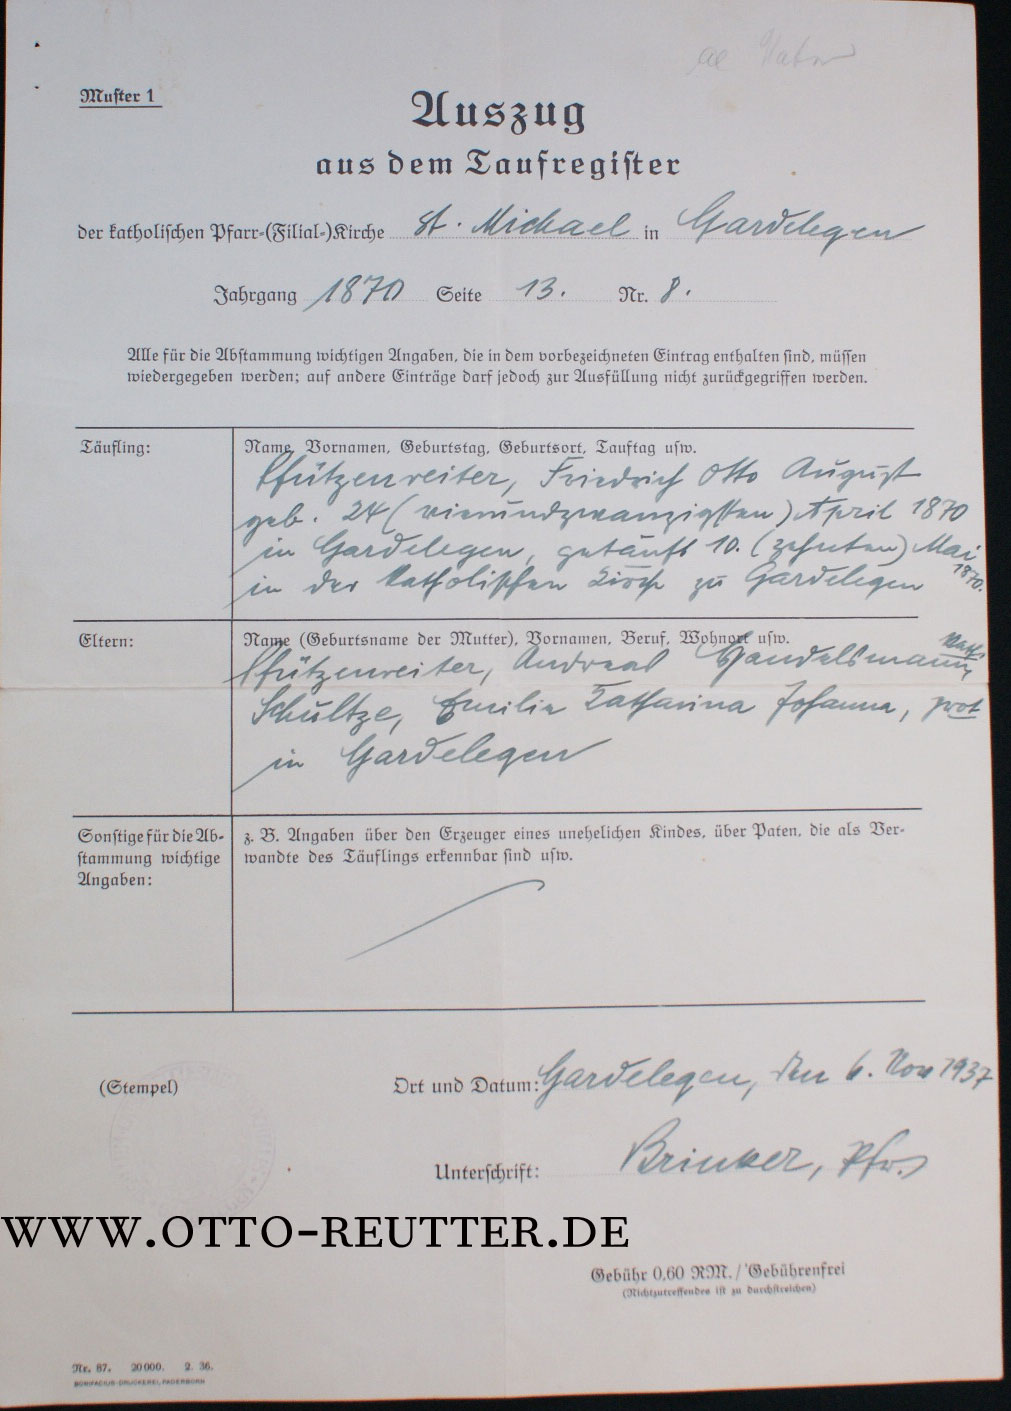 Muster 1
Auszug
aus dem Taufregister
der katholischen Pfarr-(Filial-)Kirche St. Michael in Gardelegen
Jahrgang 1870 Seite 13. Nr. 8.
Alle für die Abstammung wichtigen Angaben, die in dem vorbezeichneten Eintrag enthalten sind, müssen
wiedergegeben werden; auf andere Einträge darf jedoch zur Ausfüllung nicht zurückgegriffen werden.
Täufling:
Name, Vornamen, Geburtstag, Geburtsort, Tauftag usw.
Pfützenreiter, Friedrich Otto August
geb. 24 (vierundzwanzigsten) April 1870
in Gardelegen, getauft 10. (zehnten) Mai
1870.
in der katholischen Kirche zu Gardelegen
Eltern:
Name (Geburtsname der Mutter), Vornamen, Beruf, Wohnort usw.
Pfützenreiter, Andreas Handelsmann,
Schultze, Emilie Katharina Johanna, prot
in Gardelegen
Sonstige für die Ab-
stammung wichtige
Angaben:
z. B. Angaben über den Erzeuger eines unehelichen Kindes, über Paten, die als Ver-
wandte des Täuflings erkennbar sind usw.
(Stempel)
Ort und Datum: Gardelegen, den 6. Nov 1937
Unterschrift: Brinker, Pfr.
WWW.OTTO-REUTTER.DE
Gebühr 0,60 RM./Gebührenfrei
(Nichtzutreffendes ist zu durchstreichen)
Nr. 87. 20000. 2. 36.
BONIFACIUS-DRUCKEREI, PADERBORN